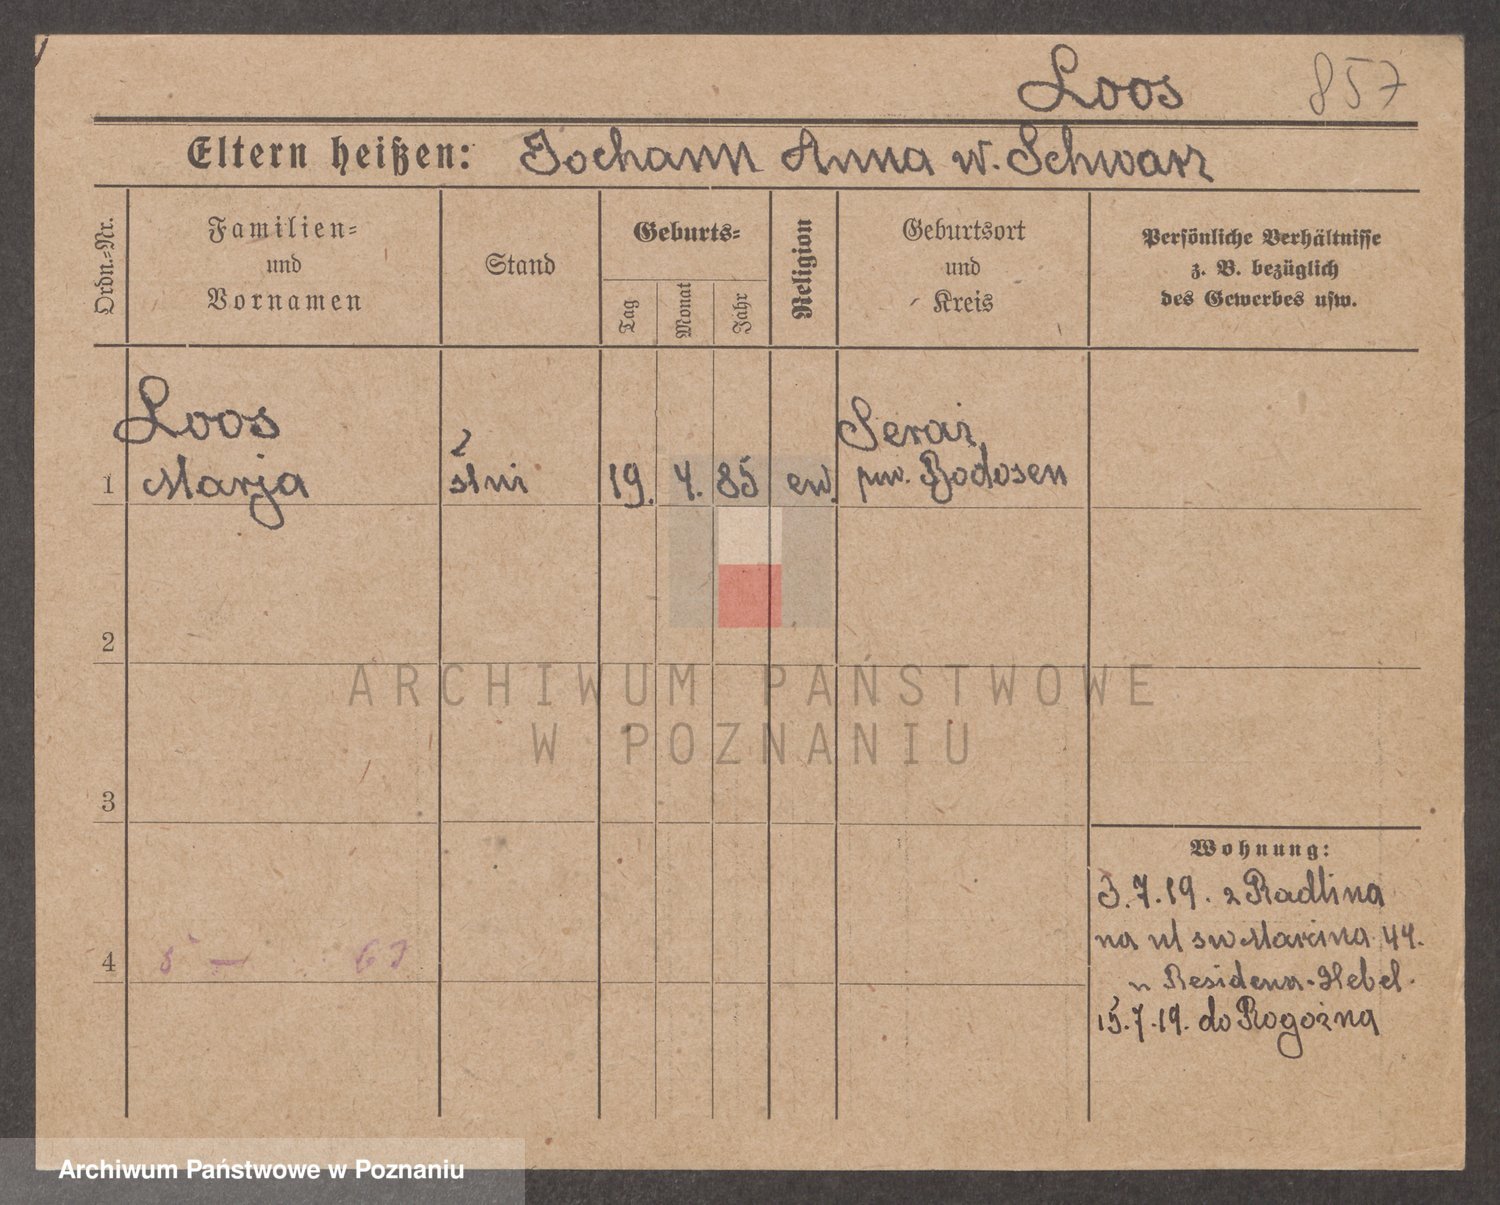 Loos 857
Eltern heißen: Jochann Anna w. Schwarz
Ordn.-Nr.
Familien-
und
Vornamen
Stand
Geburts-
Tag
Monat
Jahr
Religion
Geburtsort
und
Kreis
Persönliche Verhältnisse
z. B. bezüglich
des Gewerbes usw.
Loos
1 Marja 19. 4. 85 ew.
pow. Bodosen
2
3
4
Wohnung:
3.7.19. z Radlina
na ul sw Marcina 44.
Hebel.
15.7.19. do Rogoźna
ARCHIWUM PAŃSTWOWE
W POZNANIU
Archiwum Państwowe w Poznaniu